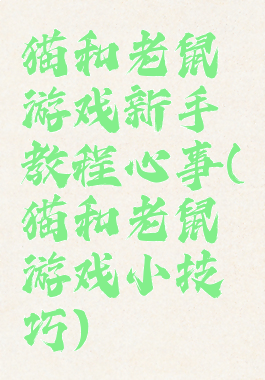 猫和老鼠
游戏新手
教程心事(
猫和老鼠
游戏小技
巧)